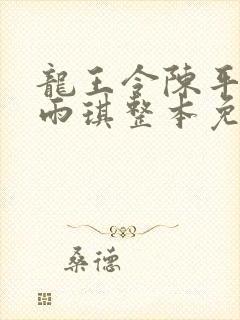 龍王令陳平
雨琪整本免
桑德